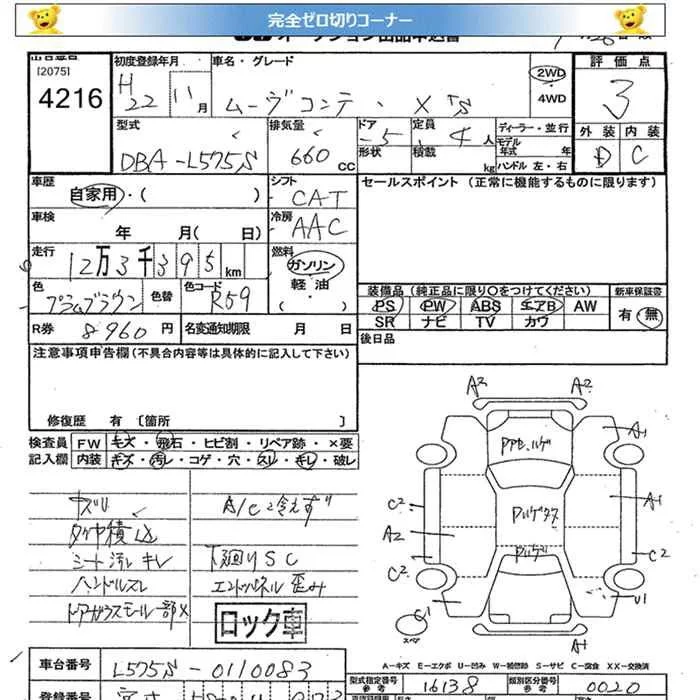 完全ゼロ切りコーナー
[2075]
4216
初度登録年月 H22年 11月
車名・グレード ムーヴコンテ・X
2WD
4WD
評価点
3
外装 内装
D C
型式 DBA-L575S
排気量 660 CC
ドア 5
形状
定員 4人
積載 kg
ディーラー・並行
モデル年式 年
ハンドル 左・右
車歴 自家用・( )
シフト CAT
セールスポイント (正常に機能するものに限ります)
車検 年 月( 日)
冷房 AAC
走行 12万3千395km
燃料 ガソリン
軽油
( ・ )
色 プラムブラウン
色替
色コード R59
装備品 (純正品に限り○をつけてください) 新車保証書
PS PW ABS エアB AW 有・無
SR ナビ TV カワ
R券 8960円
名変通知期限 月 日
後日品
注意事項申告欄(不具合内容等は具体的に記入して下さい)
修復歴 有 [箇所 ]
検査員 FW キズ・飛石・ヒビ割・リペア跡・×要
記入欄 内装 キズ・汚レ・コゲ・穴・スレ・キレ・破レ
A/C冷えず
タイヤ積込
シート汚レキレ
下廻りSC
ハンドルスレ
エンドパネル歪み
ドアガラスモール一部×
ロック車
A2 A2
A1
C2 A1
A2
C2 C2
U1
G1
スペア
A1
A-キズ E-エクボ U-凹み W-補修跡 S-サビ C-腐食 XX-交換済
車台番号 L575S-0110083
型式指定番号 参考 16138
類別区分番号 参考 0020
登録番号